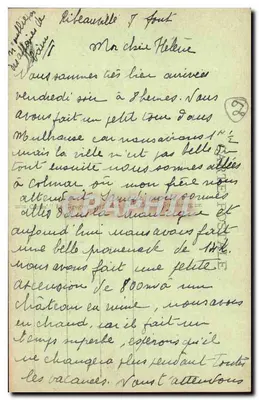 Ribeauville 8 août
Ma chère Hélène
Nous sommes très bien arrivées
vendredi soir à 8 heures. Nous
avons fait un petit tour dans
Mulhouse car nous avions 1h 1/2
mais la ville n'est pas belle du
tout ensuite nous sommes allées
à Colmar où mon frère nous
et
aujourd'hui nous avons fait
une belle promenade de
nous avons fait une petite
ascension de 800m à un
château en ruine, nous avons
eu chaud, car il fait un
temps superbe, espérons qu'il
ne changera plus pendant toutes
les vacances. Nous t'attendons
29